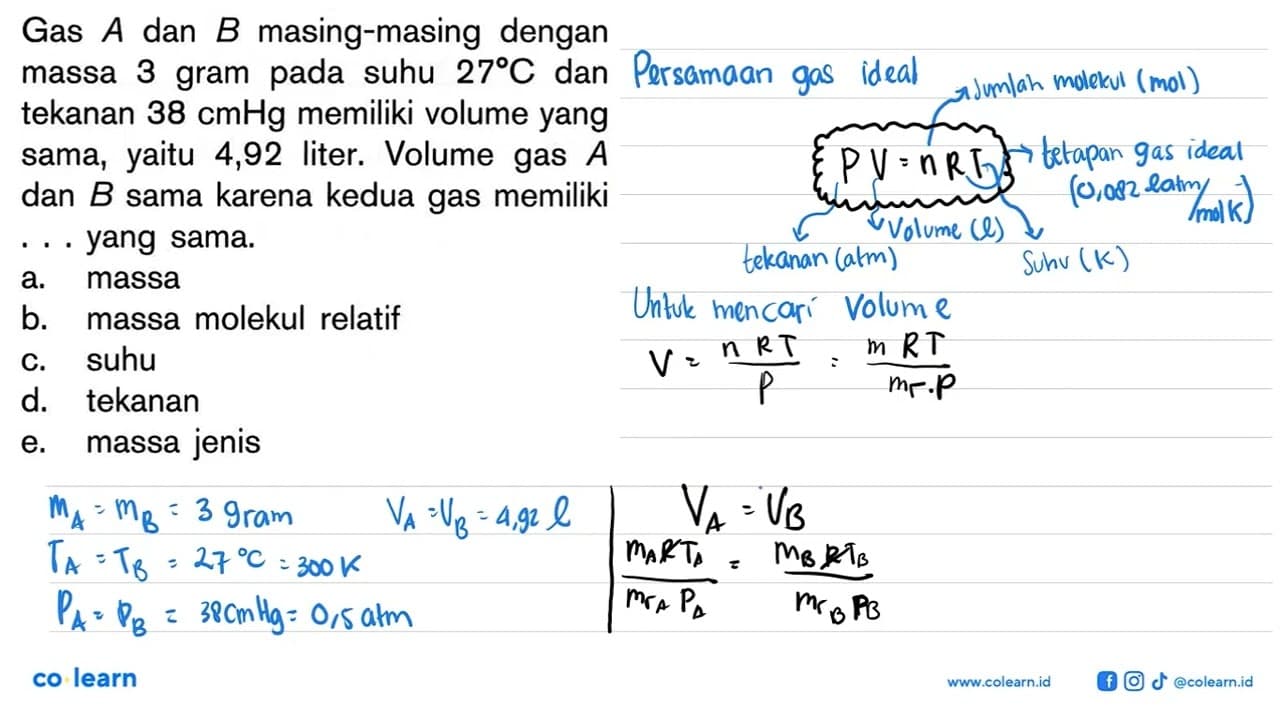 Gas A dan B masing-masing dengan
massa 3 gram pada suhu 27°C dan
tekanan 38 cmHg memiliki volume yang
sama, yaitu 4,92 liter. Volume gas A
dan B sama karena kedua gas memiliki
. . . yang sama.
a. massa
b. massa molekul relatif
c. suhu
d. tekanan
e. massa jenis
Persamaan gas ideal
Jumlah molekul (mol)
PV = nRT
tetapan gas ideal
(0,082 latm/molK)
Volume (l)
tekanan (atm)
Suhu (K)
Untuk mencari Volume
V = nRT/P = mRT/mr.P
mA = mB = 3 gram
VA = VB = 4,92 l
TA = TB = 27°C = 300 K
PA = PB = 38 cmHg = 0,5 atm
VA = VB
mA R TA/mrA PA = mB R TB/mrB PB
co learn
www.colearn.id
@colearn.id